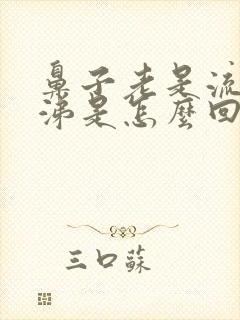 鼻子老是流
涕是怎麼回
三口蘇